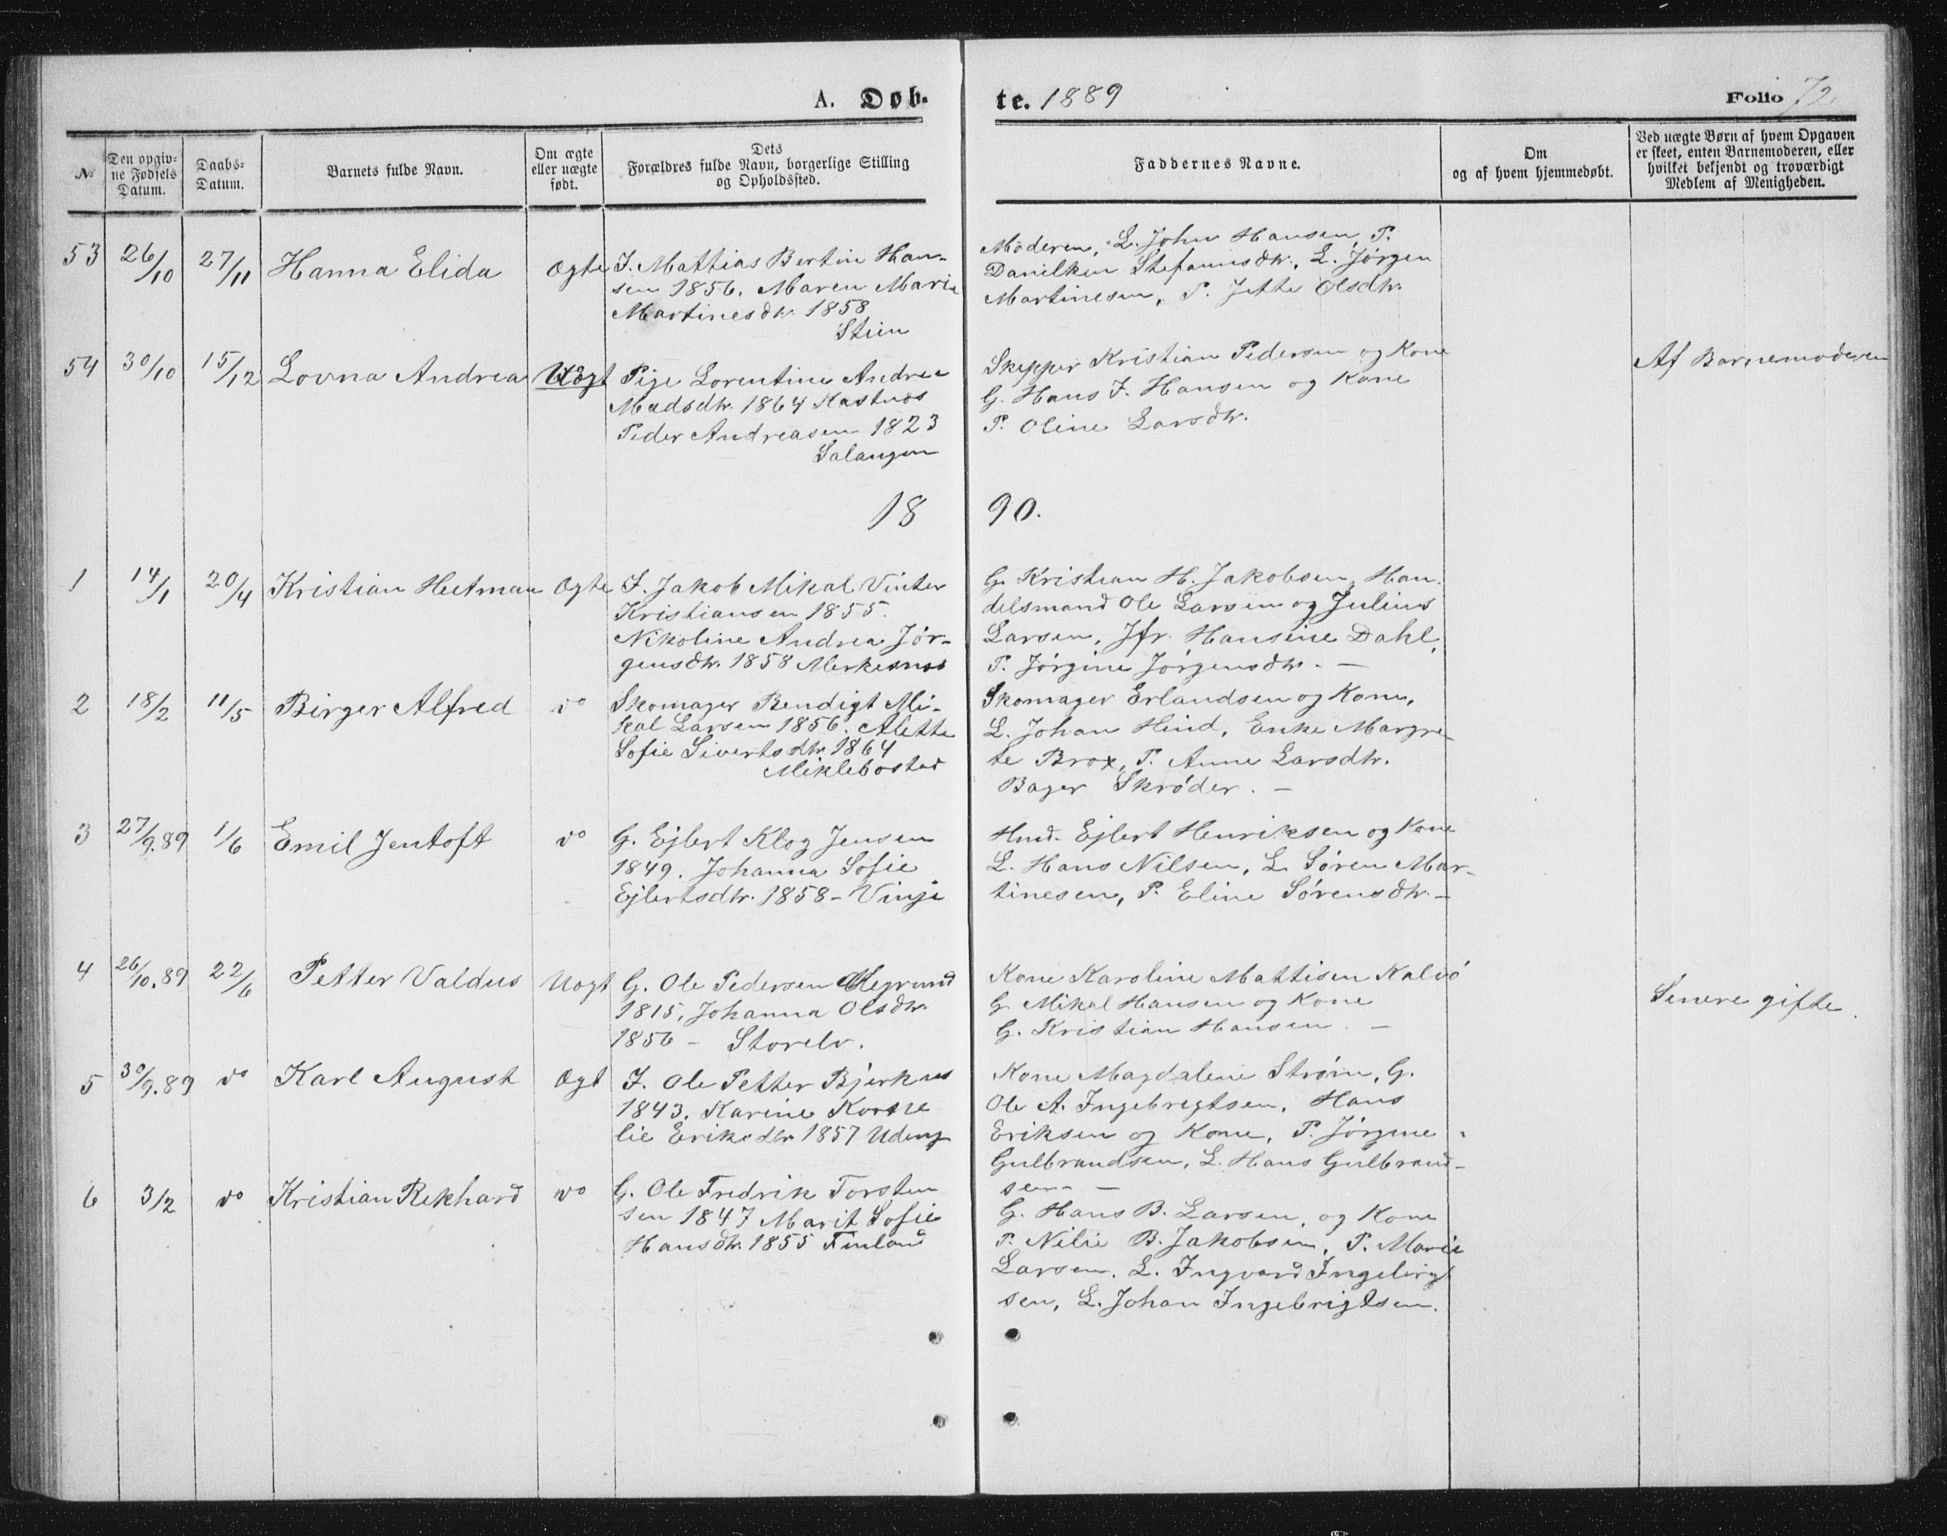 A. Døb-
te. 1889
Folio 72.
№
Den opgiv-
ne Fødsels
Datum.
Daabs-
Datum.
Barnets fulde Navn.
Om ægte
eller uægte
født.
Dets
Forældres fulde Navn, borgerlige Stilling
og Opholdssted.
Faddernes Navne.
Om
og af hvem hjemmedøbt.
Ved uægte Børn af hvem Opgaven
er skeet, enten Barnemoderen, eller
hvilket bekjendt og troværdigt
Medlem af Menigheden.
53 26/10 27/11 Hanna Elida Ægte I. Mattias Bertin Han-
sen 1856. Maren Marie
Martinesdtr. 1858
Stien
Moderen, L. John Hansen, P.
Danilken Stefannsdtr., L. Jørgen
Martinesen, P. Jette Olsdtr.
54 30/10 15/12 Lovna Andrea Uægt Pige Lorentine Andrea
Madsdtr. 1864 Kastnæs
Peder Andreasen 1823
Salangen
Skipper Kristian Pedersen og Kone
G. Hans J. Hansen og Kone
P. Oline Larsdtr.
Af Barnemoderen
1890.
1 14/1 20/4 Kristian Hetman Ægte I. Jakob Mikal Vinter
Kristiansen 1855.
Nikoline Andrea Jør-
gensdtr. 1858 Merkesnæs
G. Kristian H. Jakobsen, Han-
delsmand Ole Larsen og Julius
Larsen, Jfr. Hansine Dahl,
P. Jørgine Jørgensdtr. —
2 18/2 11/5 Birger Alfred do Skomager Bendigt Mi-
kal Larsen 1856. Alette
Sofie Sivertsdtr. 1864
Miklebostad
Skomager Erlandsen og Kone,
L. Johan Hind, Enke Margre-
te Brox, P. Anne Larsdtr.
Bager Skrøder. —
3 27/9.89 1/6 Emil Jentoft do G. Ejlert Klog Jensen
1849. Johanna Sofie
Ejlertsdtr. 1858 - Vinje
Hmd. Ejlert Henriksen og Kone
L. Hans Nilsen, L. Søren Mar-
tinesen, P. Eline Sørensdtr. —
4 26/10.89 22/6 Petter Valdus Uægt G. Ole Pedersen Ølegrund
1815, Johanna Olsdtr.
1856 - Storelv.
Kone Karoline Mattisen Kalvø
G. Mikal Hansen og Kone
G. Kristian Hansen. —
Senere gifte.
5 30/9.89 do Karl August Ægt I. Ole Petter Bjerknes
1843. Karine Korne
lie Eriksdtr 1857
Kone Magdalene Strøm, G.
Ole A. Ingebregtsen, Hans
Eriksen og Kone, P. Jørgine
Gulbrandsen, L. Hans Gulbrand-
sen. —
6 3/2 do Kristian Rekhard do G. Ole Fredrik Torsten
sen 1847 Marit Sofie
Hansdtr. 1855 Finland
G. Hans B. Larsen, og Kone
P. Nilie B. Jakobsen, P. Marie
Larsen, L. Ingvard Ingebrigt
sen, L. Johan Ingebrigtsen.